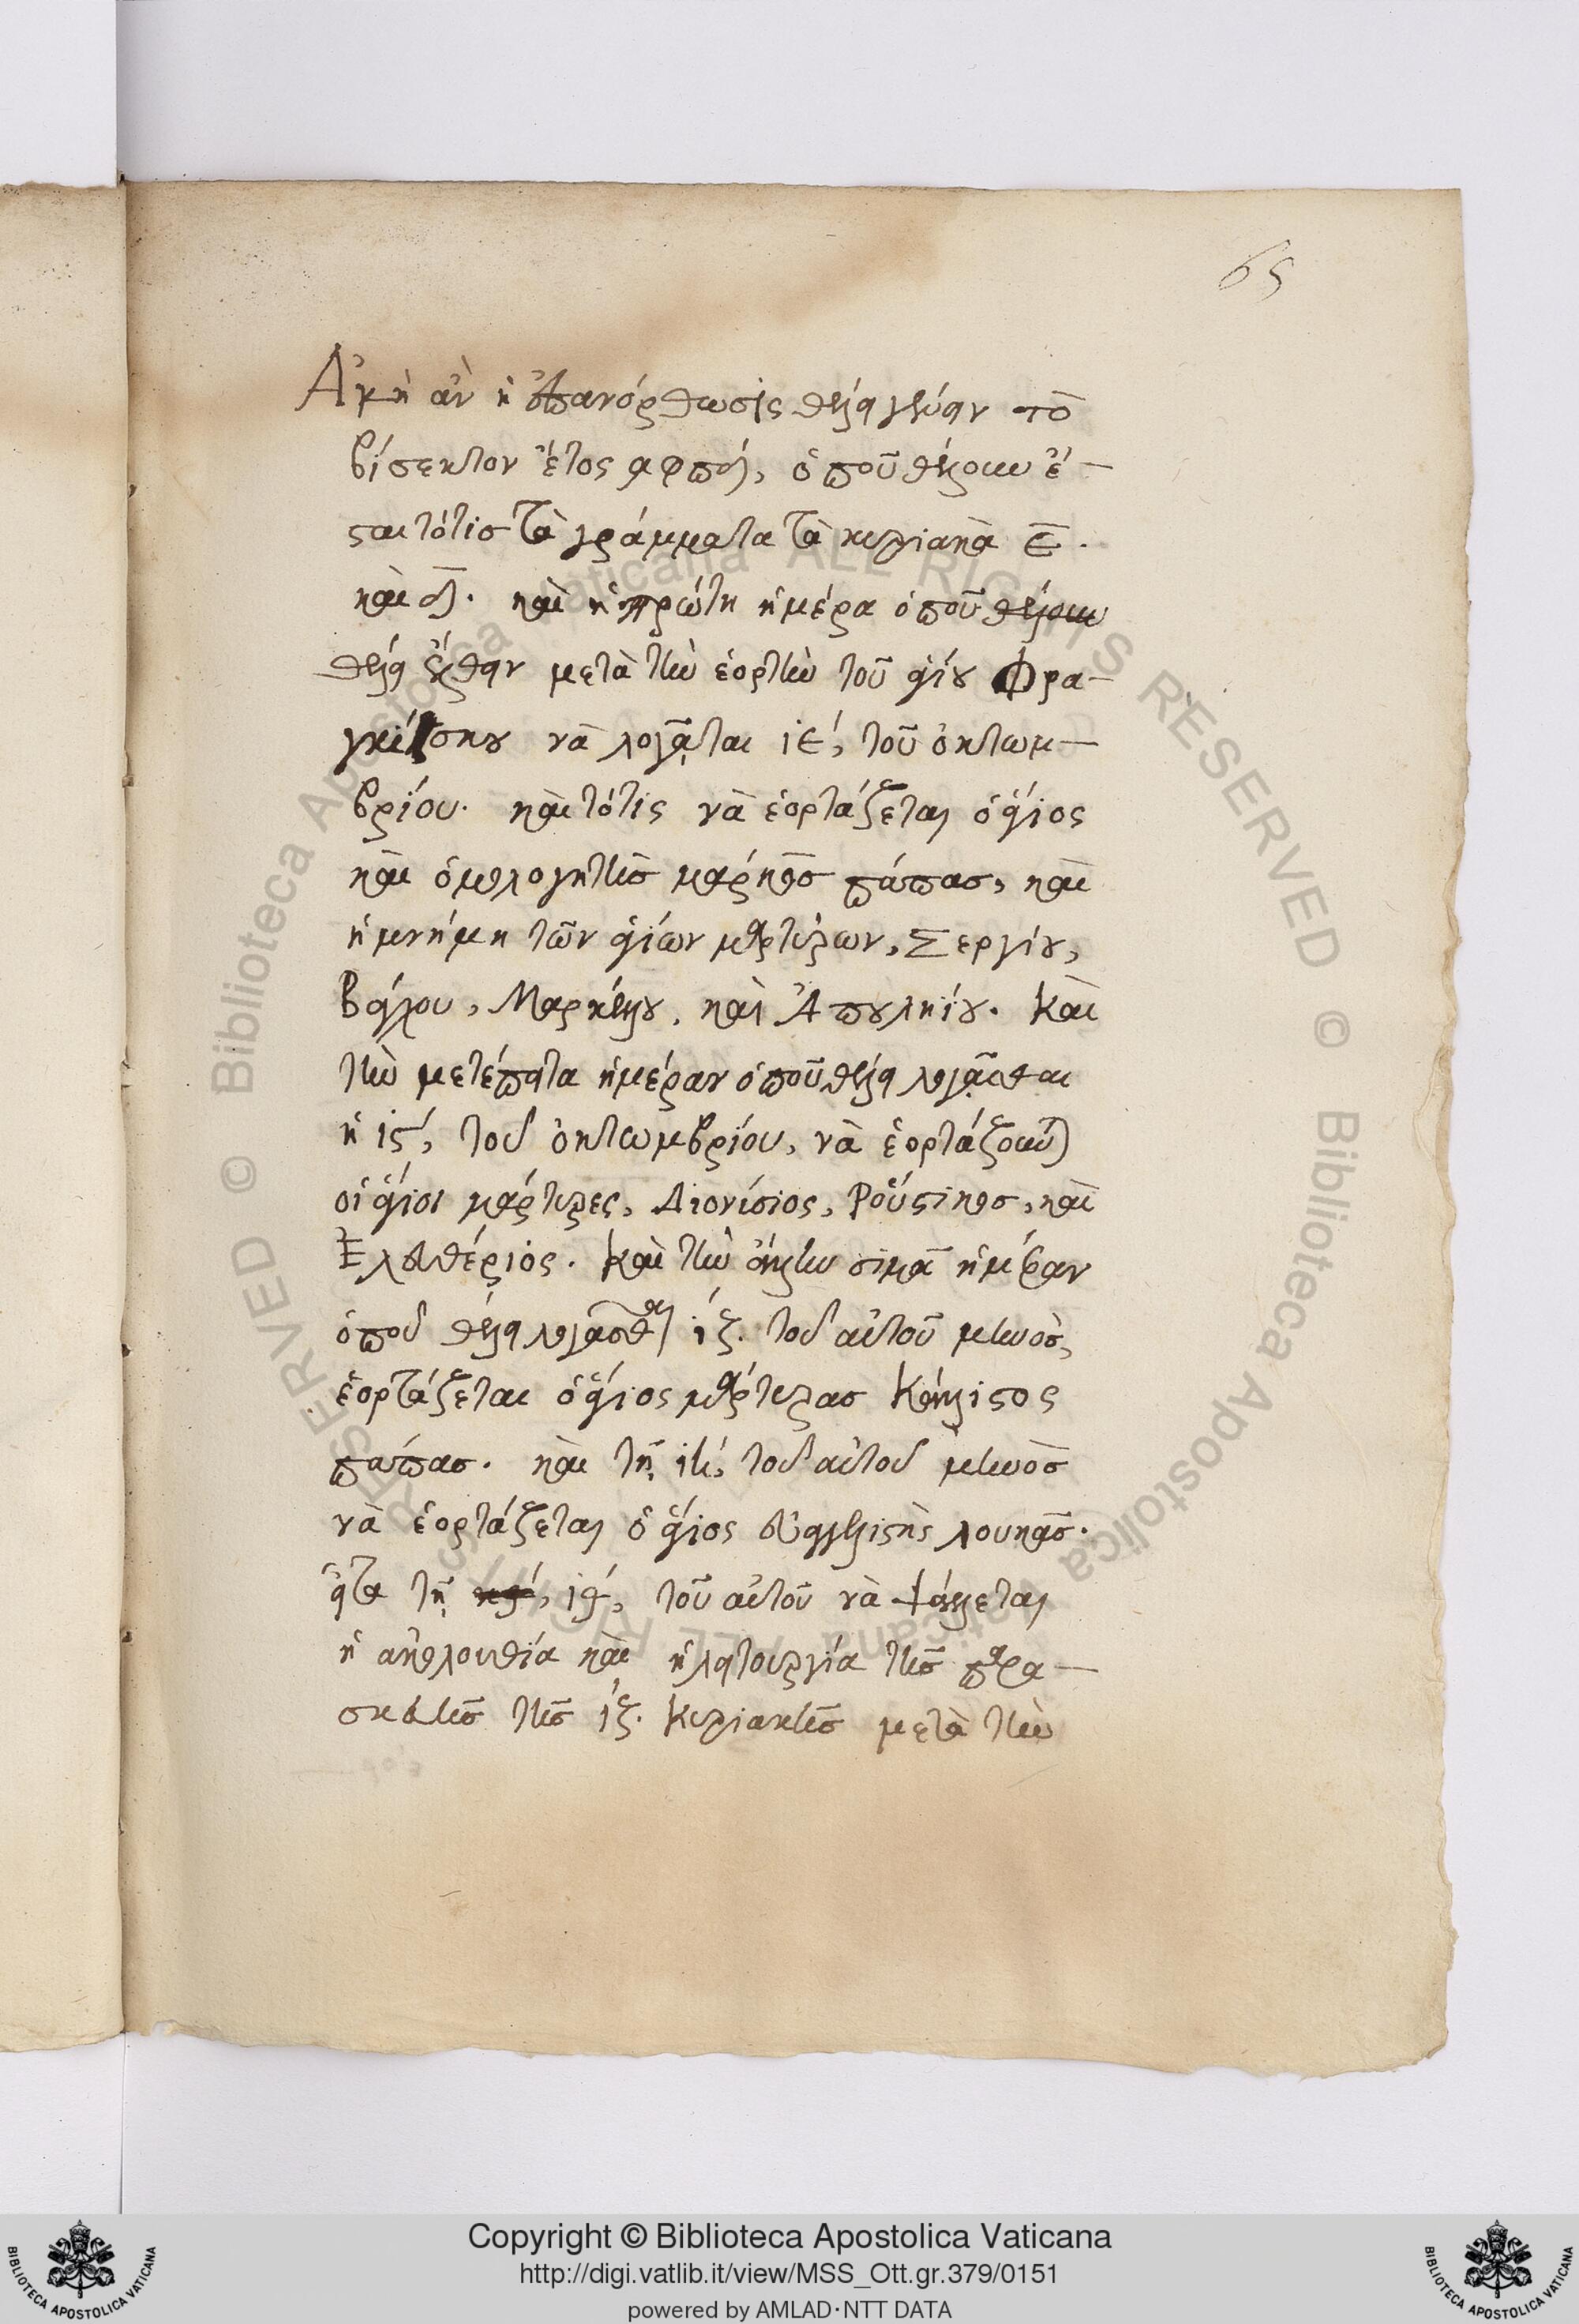 65
Ἀκὴ ἀν ἡ ἐπανόρθωσις θέλει γένειν τὸ
βίσεκτον ἔτος αφπδ, ὁποῦ θέλουν ἔ-
σται τότισ τὰ γράμματα τὰ κυριακὰ ε.
καὶ δ. καὶ ἡ πρώτη ἡμέρα ὁποῦ θέλουν
θέλει ἔλθειν μετὰ τὴν ἑορτὴν τοῦ ἁγίου Φρα-
γκίσκου νὰ λογᾶται ιε, τοῦ ὀκτωμ-
βρίου. καὶ τότις νὰ ἑορτάζεται ὁ ἅγιος
καὶ ὁμολογητὴσ μάρκοσ πάπασ, καὶ
ἡ μνήμη τῶν ἁγίων μαρτύρων, Σεργίου,
βάκχου, Μαρκέλλου, καὶ Ἀπουληίου. Καὶ
τὴν μετέπειτα ἡμέραν ὁποῦ θέλει λογᾶσθαι
ἡ ις, τοῦ ὀκτωμβρίου, νὰ ἑορτάζουν
οἱ ἅγιοι μάρτυρες, Διονίσιος, Ρούστικοσ, καὶ
Ἐλευθέριος. Καὶ τὴν ἄλλην σιμὰ ἡμέραν
ὁποῦ θέλει λογᾶσθαι ιζ. τοῦ αὐτοῦ μηνὸσ,
ἑορτάζεται ὁ ἅγιος μάρτυρασ Κάλλιστος
πάπασ. καὶ τῇ ιη, τοῦ αὐτοῦ μηνὸσ
νὰ ἑορτάζεται ὁ ἅγιος εὐαγγελιστὴς λουκᾶσ.
εἶτα τῇ ιθ, τοῦ αὐτοῦ νὰ ψάλλεται
ἡ ἀκολουθία καὶ ἡ λειτουργία τῆσ παρα-
σκευῆσ τῆσ ιζ. Κυριακῆσ μετὰ τὴν
© Biblioteca Apostolica Vaticana ALL RIGHTS RESERVED
© Biblioteca Apostolica Vaticana ALL RIGHTS RESERVED
BIBLIOTECA APOSTOLICA VATICANA
Copyright © Biblioteca Apostolica Vaticana
http://digi.vatlib.it/view/MSS_Ott.gr.379/0151
powered by AMLAD·NTT DATA
BIBLIOTECA APOSTOLICA VATICANA